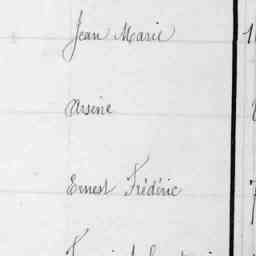 Jean Marie
Arsène
Ernest Frédéric